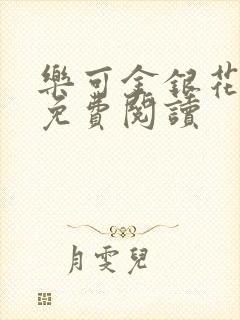 樂可金銀花
免費閱讀
月雯兒